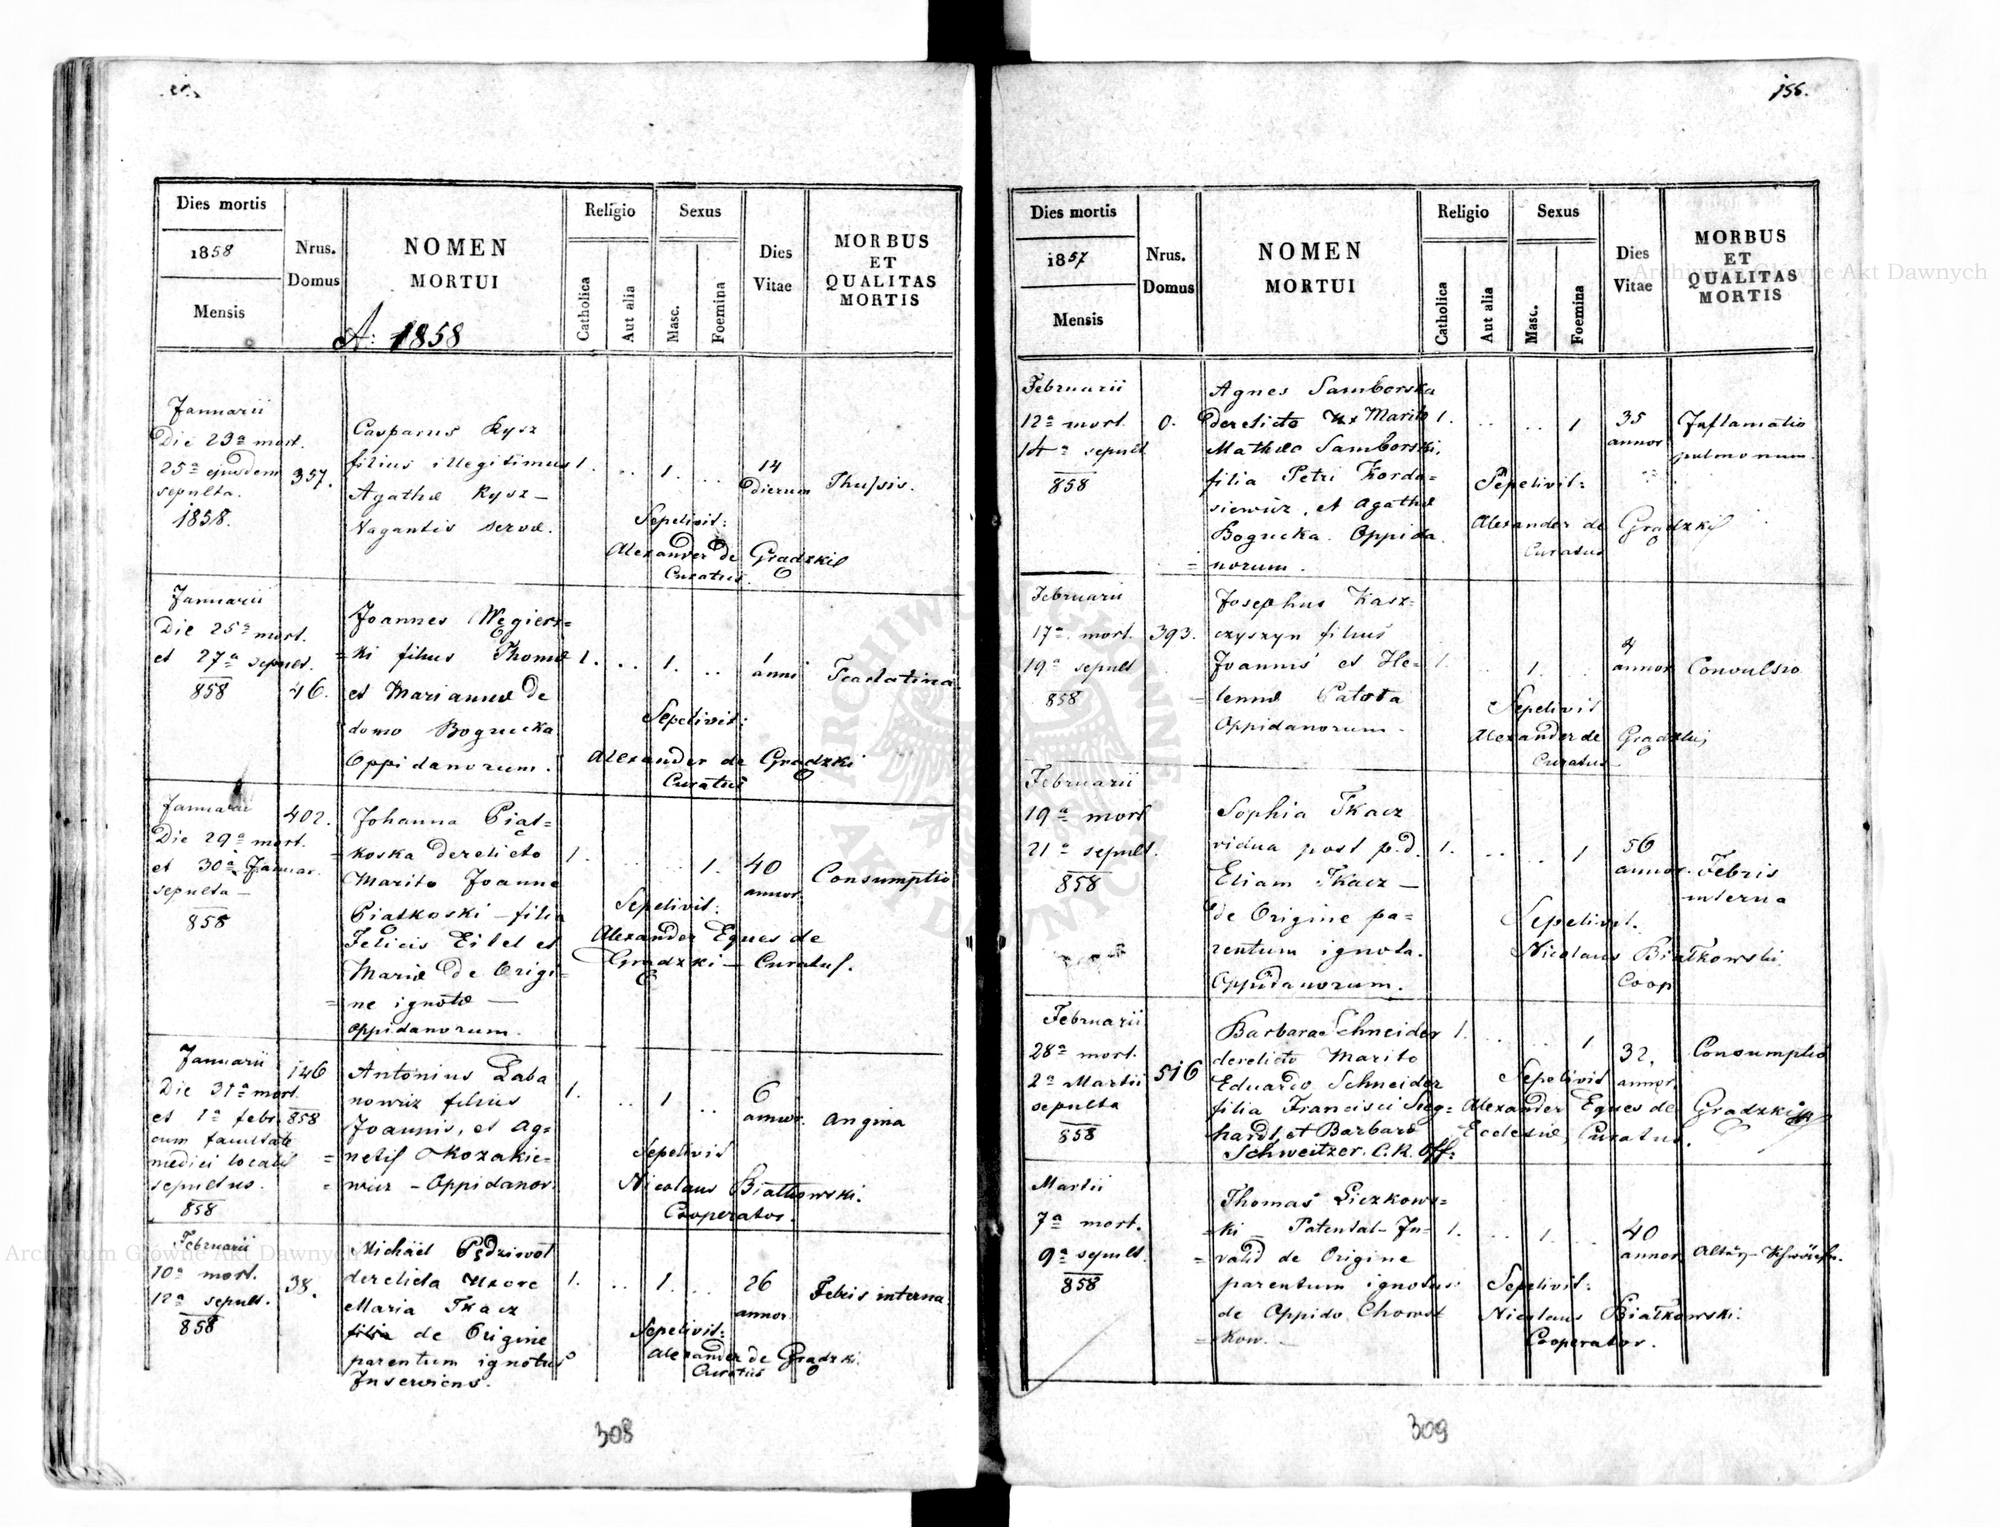 155.
Dies mortis
1858
Mensis
Nrus.
Domus
NOMEN
MORTUI
A: 1858
Religio
Catholica
Aut alia
Sexus
Masc.
Foemina
Dies
Vitae
MORBUS
ET
QUALITAS
MORTIS
Januarii
Die 23ª mort.
25ª ejusdem
sepulta.
1858.
357.
Casparus Kysz
filius illegitimus
Agathæ Kysz –
Vagantis servæ.
1. .. 1. ..
14
dierum
Sepelivit:
Alexander de Gradzki
Curatus.
Januarii
Die 25ª mort.
et 27ª sepult.
858
46.
Joannes Wegiers=
=ki filius Thomæ
et Mariannæ de
domo Bogucka
Oppidanorum.
1. .. 1. ..
1
anni
Scarlatina
Sepelivit:
Alexander de Gradzki
Curatus
Januarii
Die 29ª mort.
et 30ª Januar.
sepulta –
858
402.
Johanna Piąt=
=koska derelicto
Marito Joanne
Piątkoski – filia
Felicis Eitel et
Mariæ de Origi=
=ne ignotæ –
Oppidanorum.
1. .. .. 1.
40
annor.
Consumptio
Sepelivit:
Alexander Eques de
Gradzki – Curatus.
Januarii
Die 31ª mort.
et 1ª febr. 858
cum facultate
medici localis
sepultus.
858
146
Antonius Laba
nowicz filius
Joannis, et Ag=
=netis Kozakie=
=wicz – Oppidanor
1. .. 1 ..
6
annor.
Angina
Sepelivit
Nicolaus Białkowski.
Cooperator.
Februarii
10ª mort.
12ª sepult.
858
38.
Michäel Pędziwół
derelicta Uxore
Maria Tkacz
filia de Origine
parentum ignotus
Inserviens.
1. .. 1. ..
26
annor
Febris interna
Sepelivit:
Alexander de Gradzki.
Curatus
308
Dies mortis
1857
Mensis
Nrus.
Domus
NOMEN
MORTUI
Religio
Catholica
Aut alia
Sexus
Masc.
Foemina
Dies
Vitae
MORBUS
ET
QUALITAS
MORTIS
Februarii
12ª mort.
14ª sepult
858
0.
Agnes Samborska
derelicto Marito
Mathæo Samborski.
filia Petri Korda=
siewicz, et Agathæ
Bogucka. Oppida
=norum.
1. .. .. 1
35
annor
Inflamatio
pulmonum.
Sepelivit:
Alexander de Gradzki
Curatus
Februarii
17ª mort.
19ª sepult
858
393.
Josephus Kasz=
czyszyn filius
Joannis et He=
=lennæ
Oppidanorum.
1. .. 1. ..
4
annor
Convulsio
Sepelivit
Alexander de Gradzki
Curatus
Februarii
19ª mort
21ª sepult.
858
Sophia Tkacz
vidua post p.d.
Eliam Tkacz –
de Origine pa=
rentum ignota.
Oppidanorum.
1. .. .. 1
56
annor.
Febris
interna
Sepelivit.
Nicolaus Białkowski.
Coop
Februarii
28ª mort.
2ª Martii
sepulta
858
516
Barbara Schneider
derelicto Marito
Eduardo Schneider
filia Francisci Sieg=
hardt, et Barbaræ
Schweitzer. C.K. Off:
1. .. .. 1
32.
annor
Consumptio
Sepelivit
Alexander Eques de Gradzki
Ecclesiæ Curatus.
Martii
7ª mort.
9ª sepult.
858
Thomas Liczkows=
=ki – Patental– In=
=valid de Origine
parentum ignotus
de Oppido Chorost
=kow. –
1. .. 1. ..
40
annor
Sepelivit:
Nicolaus Białkowski.
Cooperator.
309
Archiwum Główne Akt Dawnych
Archiwum Główne Akt Dawnych
ARCHIWUM GŁÓWNE AKT DAWNYCH